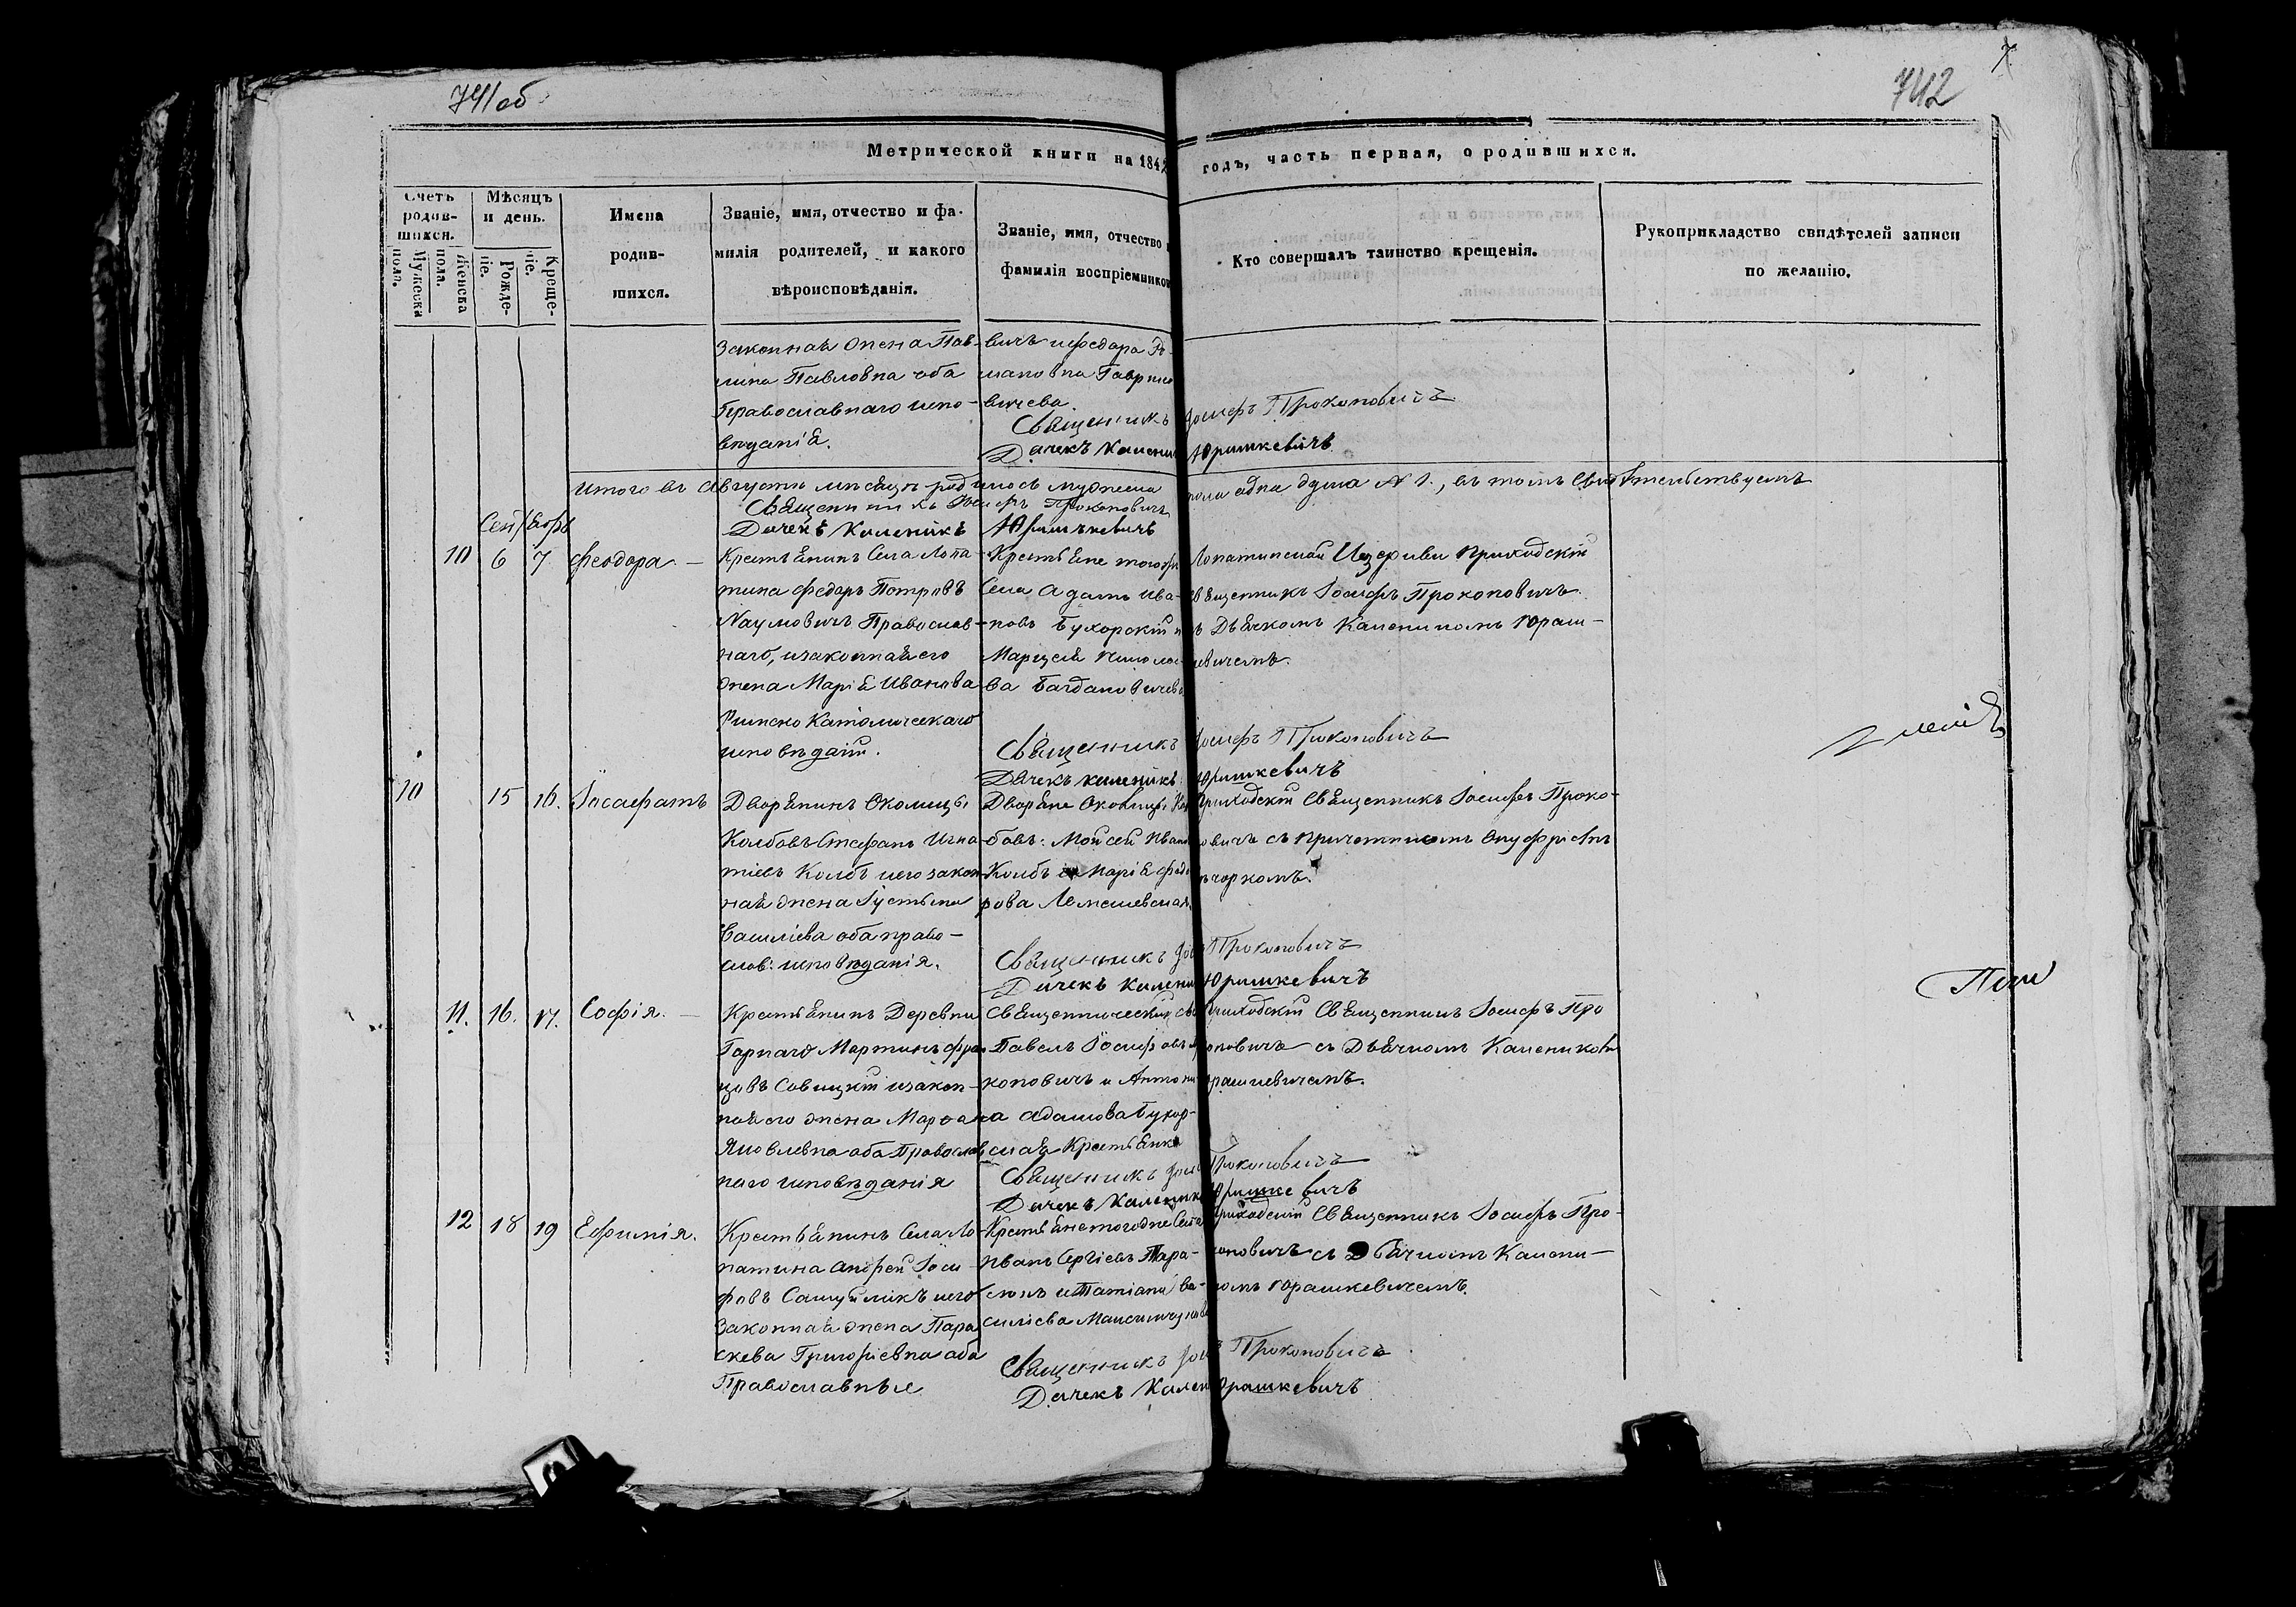 741об
742
7
Метрической книги на 1842 годъ, часть первая, о родившихся.
Счетъ родив-шихся.
Мужеска пола.
Женска пола.
Мѣсяцъ и день.
Рожденіе.
Крещеніе.
Имена
родив-
шихся.
Званіе, имя, отчество и фа-
милія родителей, и какого
вѣроисповѣданія.
Званіе, имя, отчество и
фамилія воспріемниковъ
Кто совершалъ таинство крещенія.
Рукоприкладство свидѣтелей записи
по желанію.
Законная жена Пав-
лина Павловна оба
Православнаго испо-
вѣданія.
вичъ и Федора Ро-
мановна Гаври
вичева.
Священникъ Іосифъ Прокоповичъ
Дячекъ Каленикъ Юришкевичъ
Итого въ Августѣ мѣсяцѣ родилось мужеска пола одна душа № 1., въ томъ свидѣтельствуемъ
Священникъ Іосифъ Прокоповичъ
Дячекъ Каленикъ Юришкевичъ
Сентябрь
10
6
7
Феодора
Крестьянинъ Села Лопа-
тина Федоръ Петровъ
Наумовичъ Православ-
наго, и законная его
жена Марія Иванова
Римско Католическаго
исповѣданія.
Крестьяне того же
Села Адамъ Ива-
новъ Бухорскій и
Марцеля
ва Багдановичева
Лопатинской Церкви Приходскій
Священникъ Іосифъ Прокоповичъ
съ Дьячкомъ Каленикомъ Юраш-
кевичемъ.
Священникъ Іосифъ Прокоповичъ
Дячекъ Каленикъ Юришкевичъ
10
15
16.
Іосафатъ
Дворянинъ Околицы
Колбовъ Стефанъ Игна-
тіевъ Колбъ и его закон-
ная жена Іустина
Василіева оба право-
слов: исповѣданія.
Дворяне Околицы Кол-
бовъ: Мойсей Ивановъ
Колбъ и Марія Федо-
рова Лемешевская.
Приходскій Священникъ Іосифъ Проко-
повичъ съ Причетникомъ Онуфріемъ
Священникъ Іос Прокоповичъ
Дячекъ Калени Юришкевичъ
11.
16.
17.
Софія.
Крестьянинъ Деревни
Горнаго Мартинъ Фран
цовъ Савицкій и закон-
ная его жена Марта
Яковлевна оба Православ
наго исповѣданія
Священническій сынъ
Павелъ Іосифовъ Про
коповичъ и Антони
на Адамова Бухор-
ская Крестьянка
Приходскій Священникъ Іосифъ Про
коповичъ съ Дьячкомъ Каленикомъ
Юрашкевичемъ.
Священникъ Іоси Прокоповичъ
Дячекъ Каленик Юришкевичъ
12
18
19
Ефимія.
Крестьянинъ Села Ло-
патина Андрей Іоси-
фовъ Самуйликъ и его
Законная жена Пара
скева Григоріевна оба
Православные
Крестьяне того же Села
Иванъ Сергіевъ Тара-
сюкъ и Татіана Ва-
силіева
Приходскій Священникъ Іосифъ Про-
коповичъ съ Дьячкомъ Калени-
комъ Юрашкевичемъ.
Священникъ Іос Прокоповичъ
Дячекъ Кален Юрашкевичъ